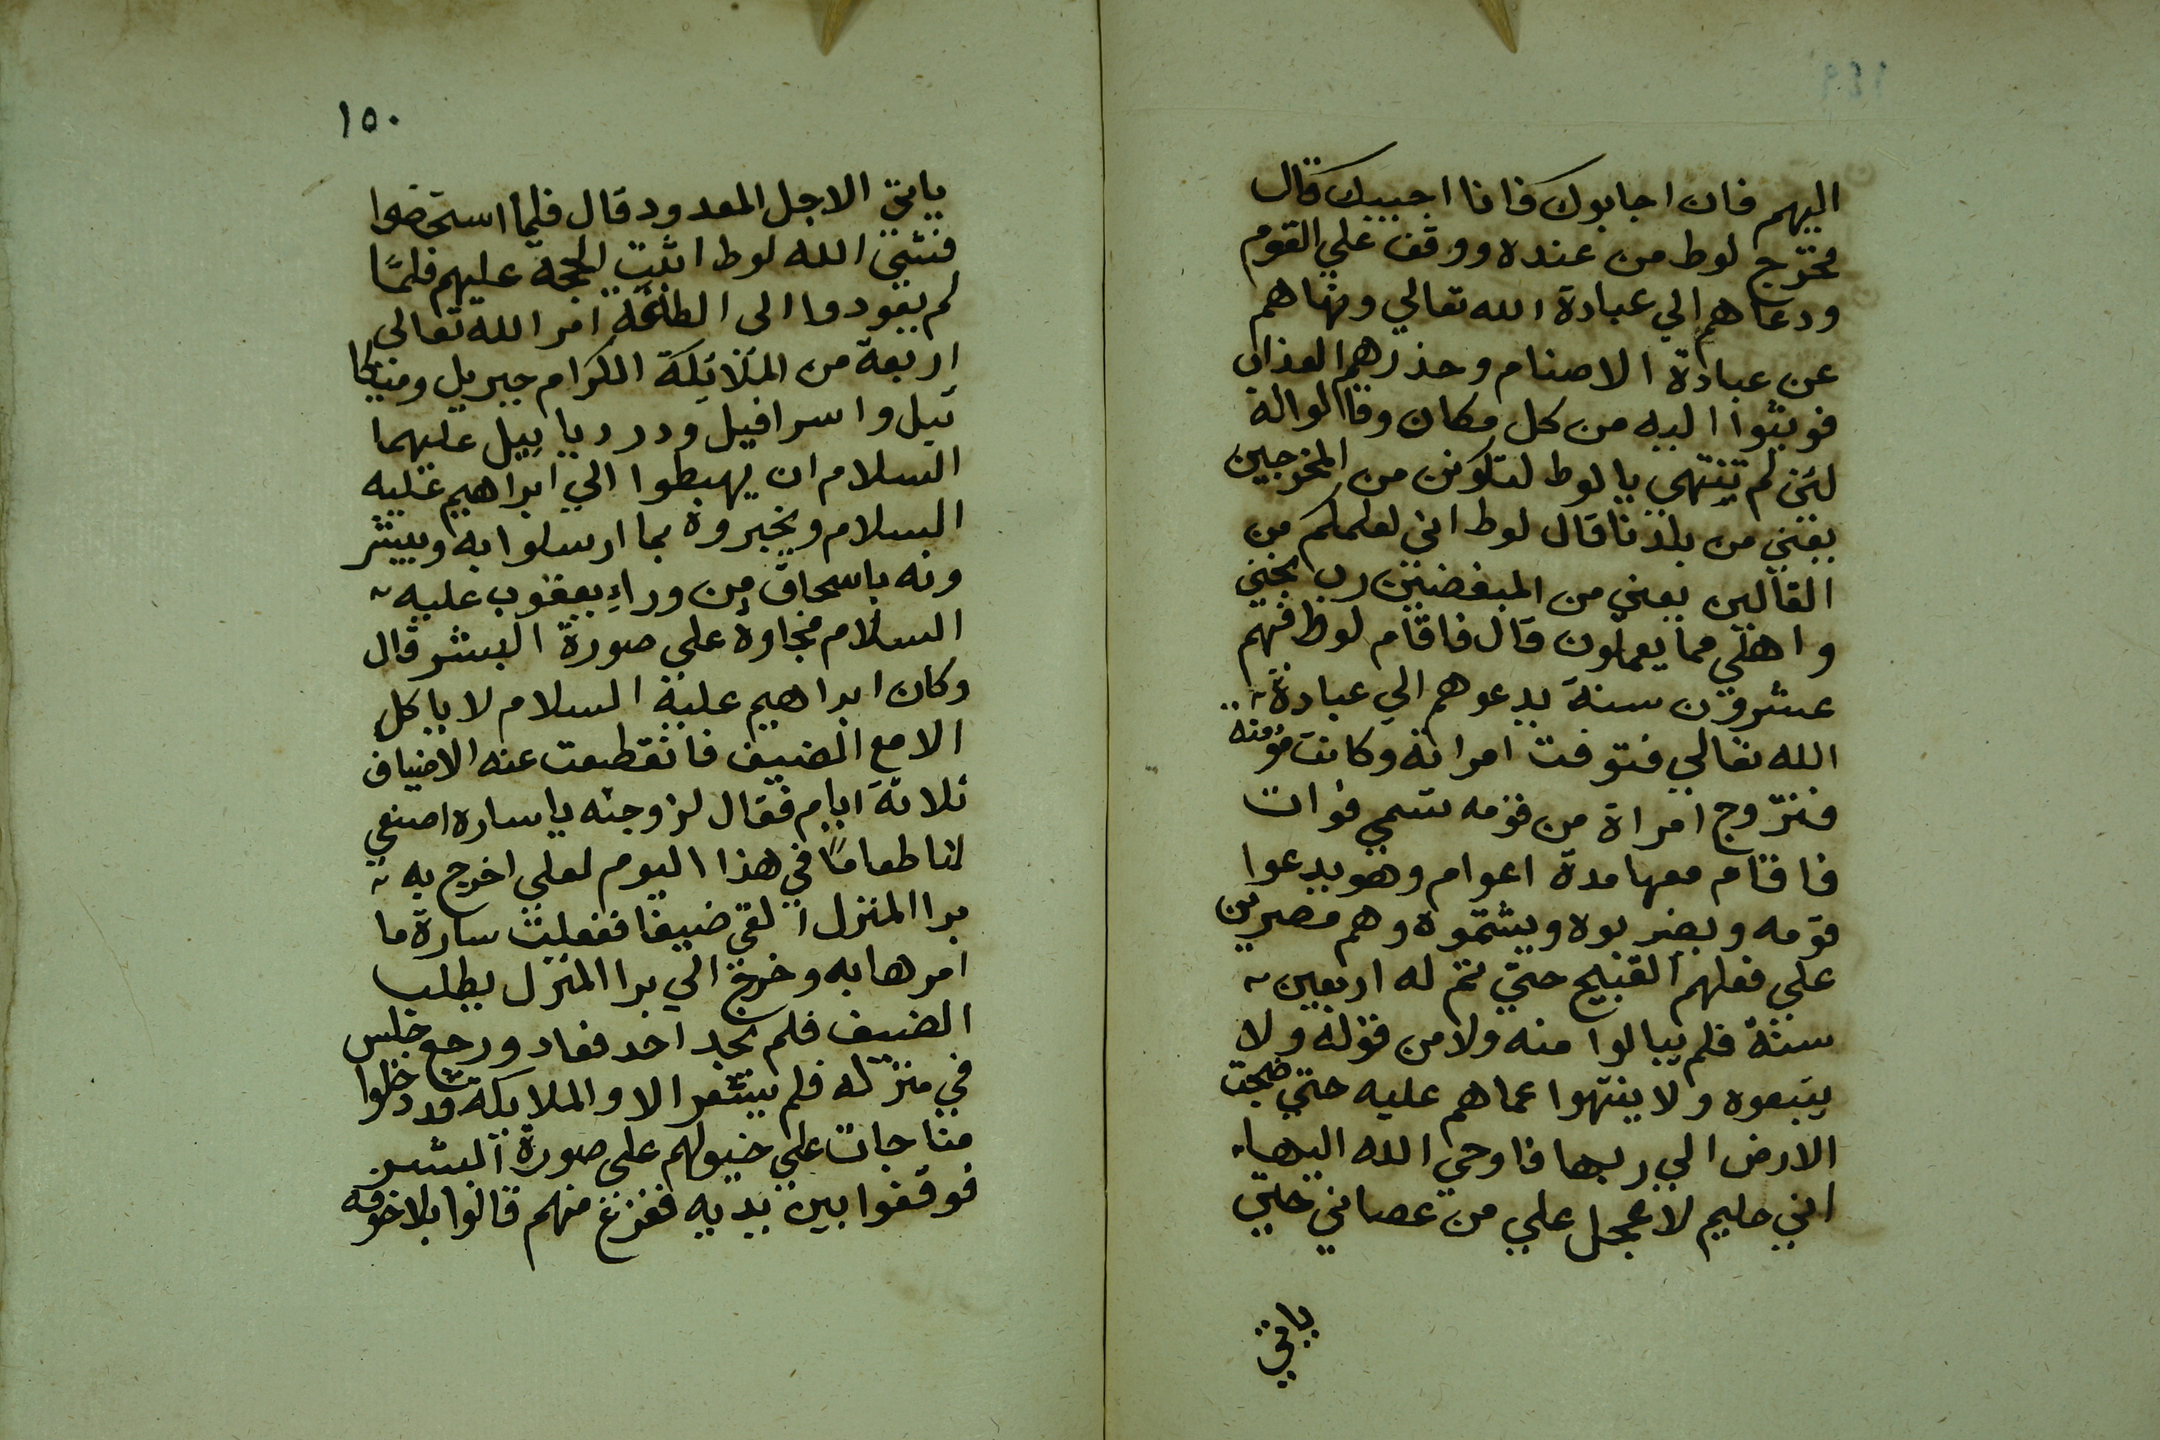 اليهم فان اجابوك فانا اجيبك قال
فخرج لوط من عنده ووقف علي القوم
ودعاهم الي عبادة الله تعالي ونهاهم
عن عبادة الاصنام وحذرهم العذاب
فوثبوا اليه من كل مكان وقالوا له
لئن لم تنتهي يا لوط لتكونن من المخرجين
يعني من بلدنا قال لوط اني لعلمكم من
القالين يعني من المبغضين رب نجني
واهلي مما يعملون قال فاقام لوط فيهم
عشرون سنة يدعوهم الي عبادة
الله تعالي فتوفت امراته وكانت مؤمنه
فتزوج امراة من قومه تسمي فوات
فاقام معها مدة اعوام وهو يدعوا
قومه ويضربوه ويشتموه وهم مصرين
علي فعلهم القبيح حتي تم له اربعين
سنة فلم يبالوا منه ولا من قوله ولا
يتبعوه ولا ينتهوا عما هم عليه حتي ضجت
الارض الي ربها فاوحي الله اليها
اني حليم لا عجل علي من عصاني حتي
ياتي
١٥٠
ياتي الاجل المعدود قال فلما
الله لوط اثبت الحجة عليهم فلمّا
لم يعودوا الى الطاعة امر الله تعالى
اربعة من الملائكة الكرام جبريل وميكا
ئيل واسرافيل ودرديائيل عليهما
السلام ان يهبطوا الي ابراهيم عليه
السلام ويخبروه بما ارسلوا به ويبشر
ونه باسحاق من وراءِ يعقوب عليه
السلام فجاوه على صورة البشر قال
وكان ابراهيم عليه السلام لا ياكل
الا مع الضيف فانقطعت عنه الاضياف
ثلاثة ايام فقال لزوجته ياساره اصنعي
لنا طعاماً في هذا اليوم لعلي اخرج به
برا المنزل القي ضيفا ففعلت سارة ما
امرها به وخرج الي برا المنزل يطلب
الضيف فلم يجد احد فعاد ورجع جلس
في منزله فلم يشعر الا والملايكة قد دخلوا
علي خيولهم على صورة البشر
فوقفوا بين يديه ففزع منهم قالوا بلا خوفه